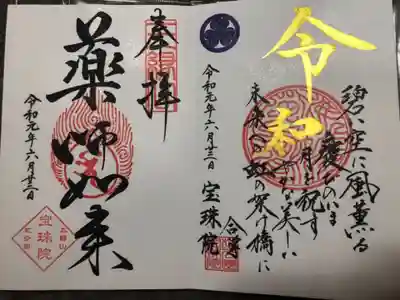 令和
碧い空に風薫る
慶びのいま
月を祝す
美しい
未来への虹の架け橋に
合掌
宝珠院
令和元年六月廿三日
奉拝
薬師如来
令和元年六月廿三日
宝珠院